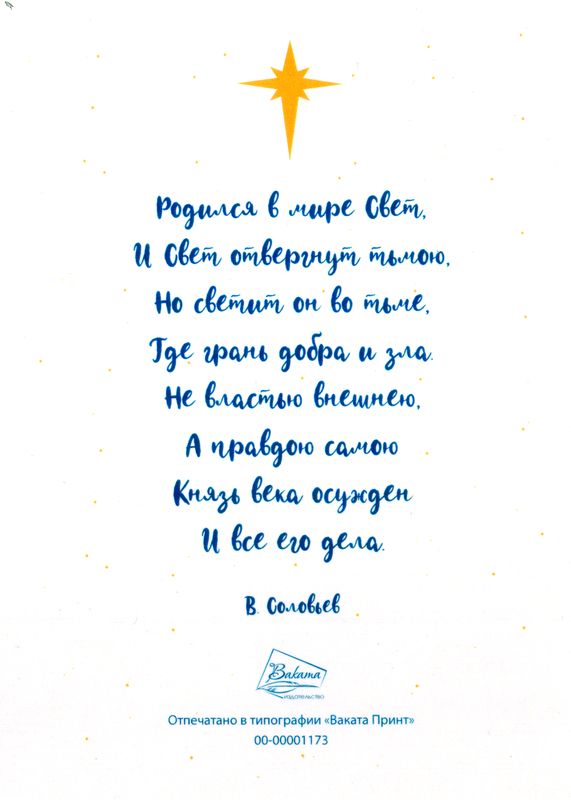 Родился в мире Свет,
И Свет отвергнут тьмою,
Но светит он во тьме,
Где грань добра и зла.
Не властью внешнею,
А правдою самою
Князь века осужден
И все его дела.
В. Соловьев
Ваката
издательство
Отпечатано в типографии «Ваката Принт»
00-00001173